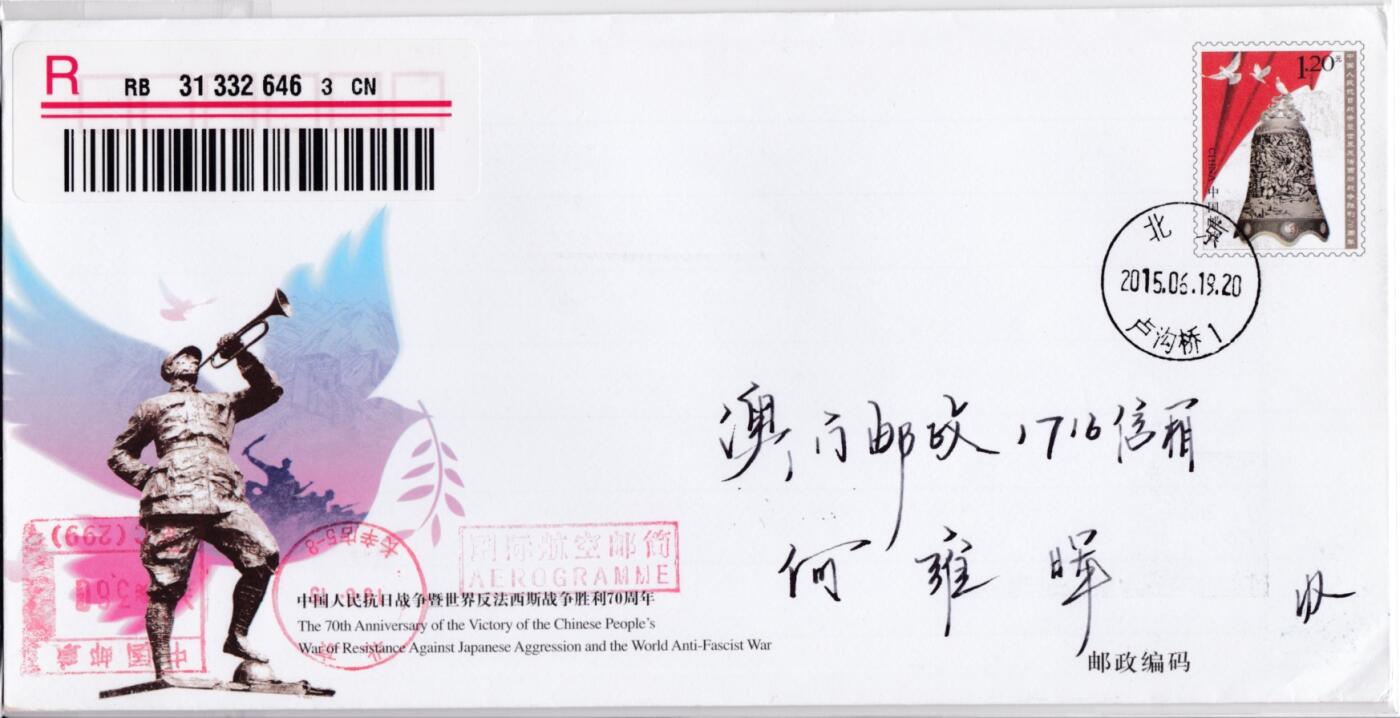 R
RB 31 332 646 3 CN
1.20元
中国人民抗日战争暨世界反法西斯战争胜利70周年
CHINA 中国邮政
北京
2015.06.19.20
卢沟桥1
澳门邮政1716信箱
何雍晖 收
国际航空邮简
AEROGRAMME
长辛店5-8
北京
(299)
中国邮政
中国人民抗日战争暨世界反法西斯战争胜利70周年
The 70th Anniversary of the Victory of the Chinese People's
War of Resistance Against Japanese Aggression and the World Anti-Fascist War
邮政编码